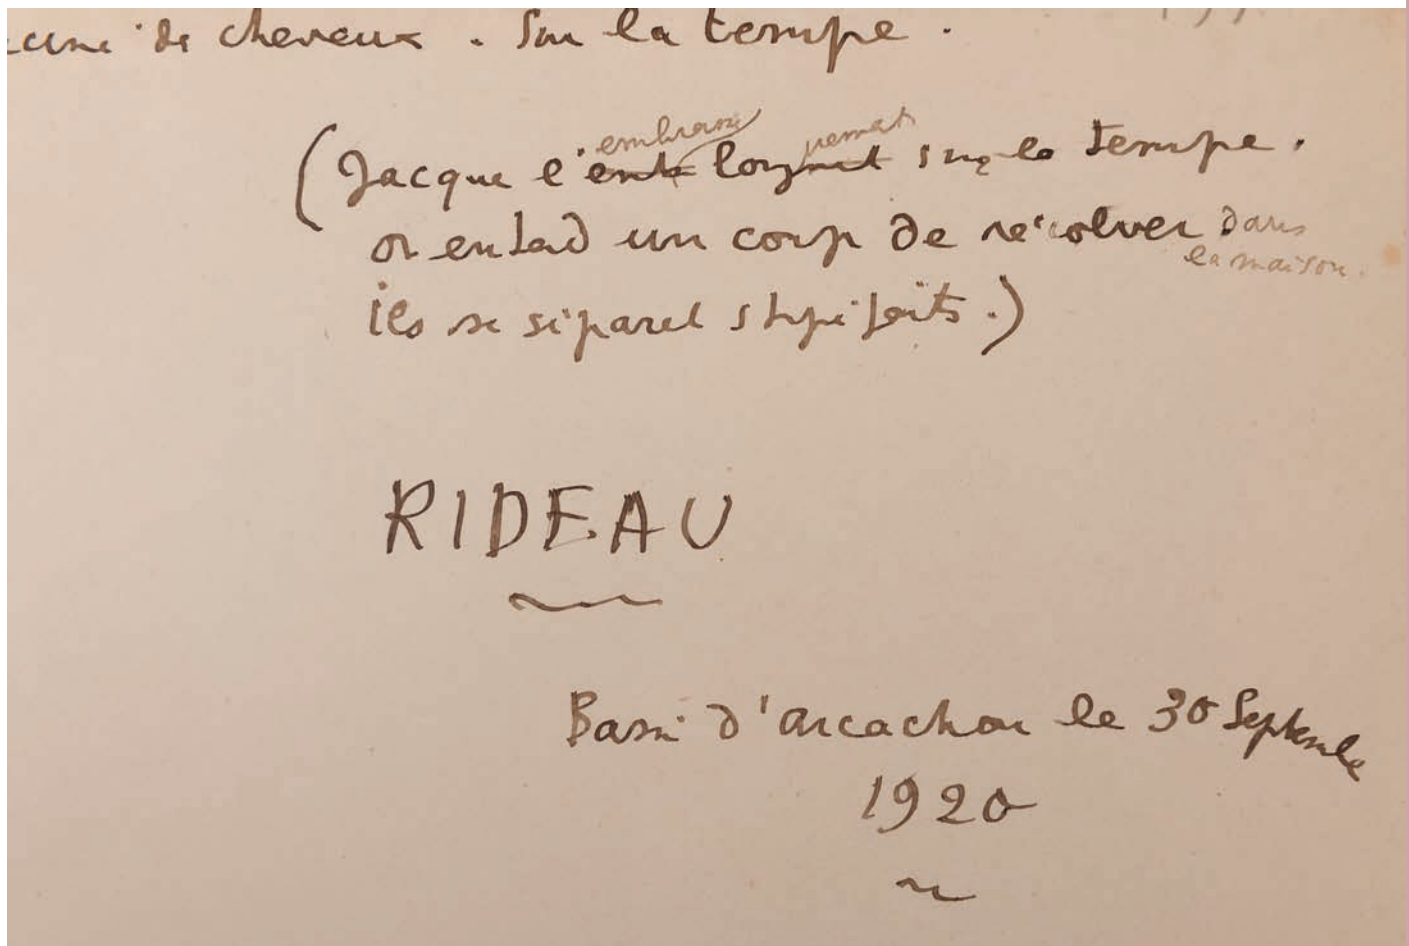 de cheveux . Sur la tempe .
embrasse
(Jacque l' longuement sur la tempe .
on entend un coup de revolver dans
la maison .
ils se séparent stupéfaits .)
RIDEAU
Bassin d'arcachon le 30 Septembre
1920